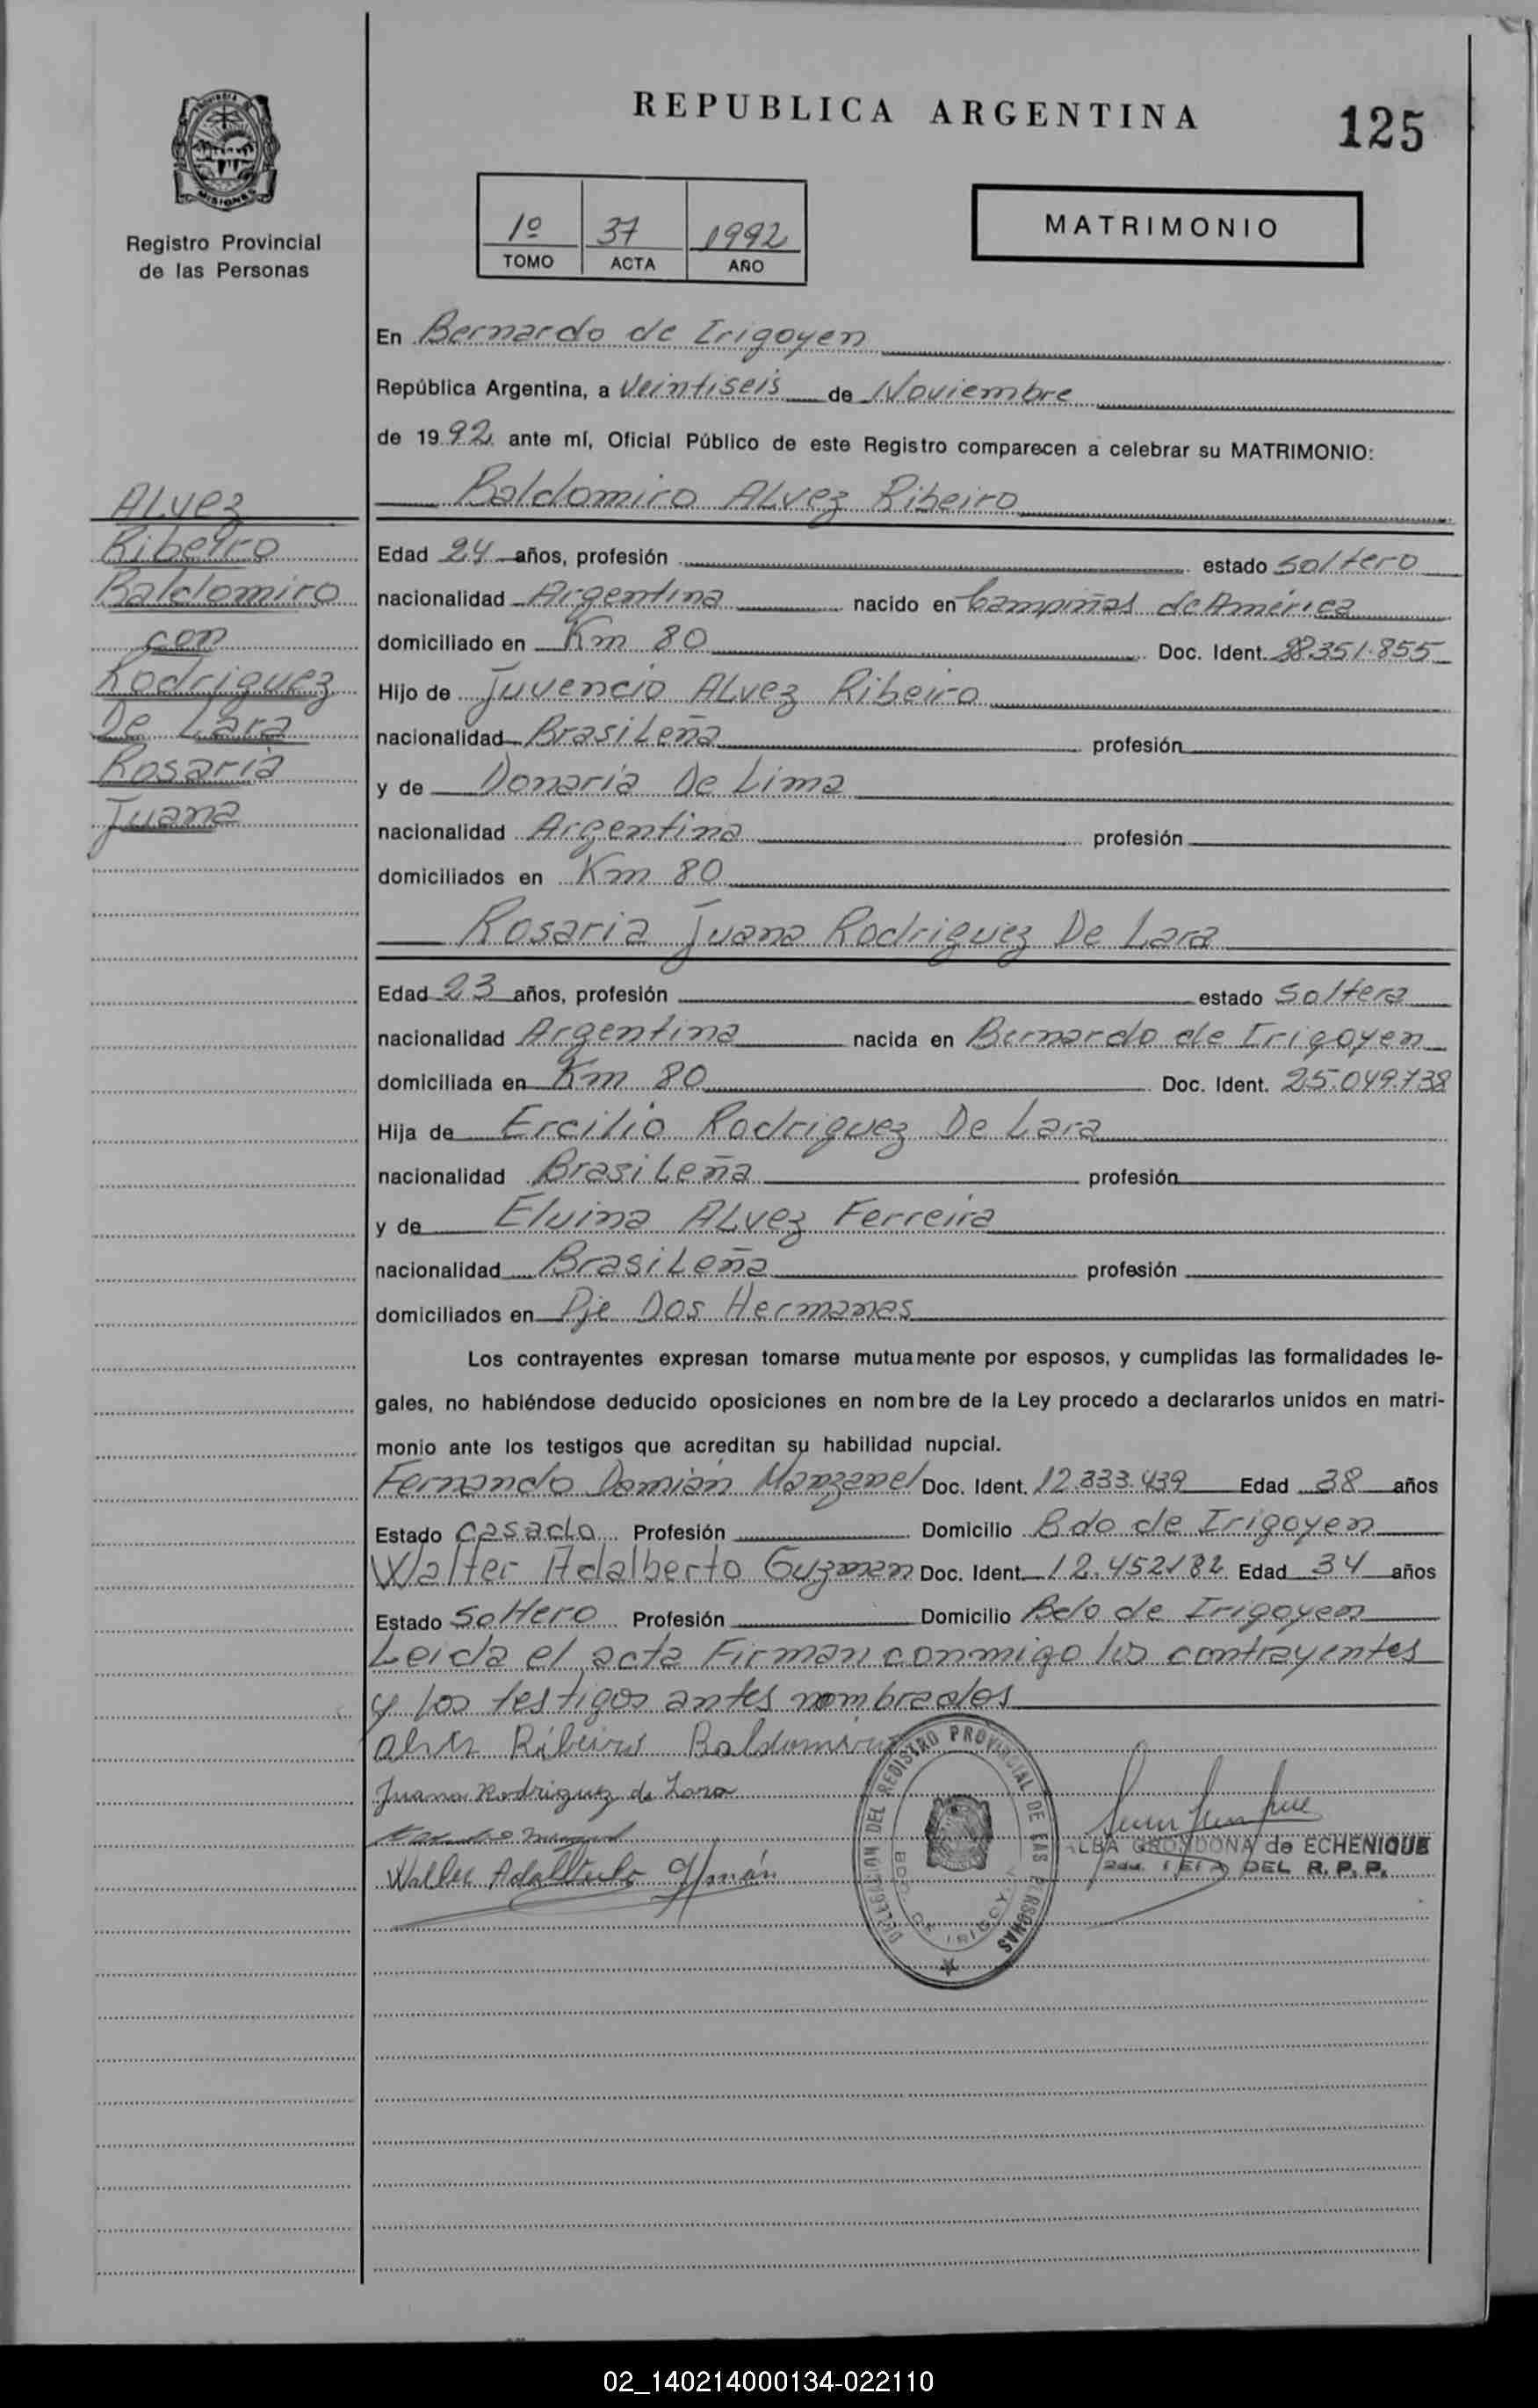 REPUBLICA ARGENTINA
125
PROVINCIA DE
MISIONES
Registro Provincial
de las Personas
1º 37 1992
TOMO ACTA AÑO
MATRIMONIO
En Bernardo de Irigoyen
República Argentina, a Veintiseis de Noviembre
de 1992 ante mí, Oficial Público de este Registro comparecen a celebrar su MATRIMONIO:
Alvez
Ribeiro
Baldomiro
con
Rodriguez
De Lara
Rosaria
Juana
Baldomiro Alvez Ribeiro
Edad 24 años, profesión estado Soltero
nacionalidad Argentina nacido en Campiñas de América
domiciliado en Km 80 Doc. Ident. 351.855
Hijo de Juvencio Alvez Ribeiro
nacionalidad Brasileña profesión
y de Donaria De Lima
nacionalidad Argentina profesión
domiciliados en Km 80
Rosaria Juana Rodriguez De Lara
Edad 23 años, profesión estado Soltera
nacionalidad Argentina nacida en Bernardo de Irigoyen
domiciliada en Km 80 Doc. Ident. 25.049.738
Hija de Ercilio Rodriguez De Lara
nacionalidad Brasileña profesión
y de Elvina Alvez Ferreira
nacionalidad Brasileña profesión
domiciliados en Pje Dos Hermanas
Los contrayentes expresan tomarse mutuamente por esposos, y cumplidas las formalidades le-
gales, no habiéndose deducido oposiciones en nombre de la Ley procedo a declararlos unidos en matri-
monio ante los testigos que acreditan su habilidad nupcial.
Fernando Damián Manzanel Doc. Ident. 12.333.439 Edad 38 años
Estado Casado Profesión Domicilio Bdo de Irigoyen
Walter Adalberto Guzman Doc. Ident. 12.452182 Edad 34 años
Estado Soltero Profesión Domicilio Bdo de Irigoyen
Leida el acta Firman conmigo los contrayentes
y los testigos antes nombrados
Alvez Ribeiro Baldomiro
Juana Rodriguez de Lara
Walter Adalberto Guzmán
DELEGACION DEL REGISTRO PROVINCIAL DE LAS PERSONAS
BDO. DE IRIGOY.
ALBA GRONDONA de ECHENIQUE
DEL R. P. P.
02_140214000134-022110